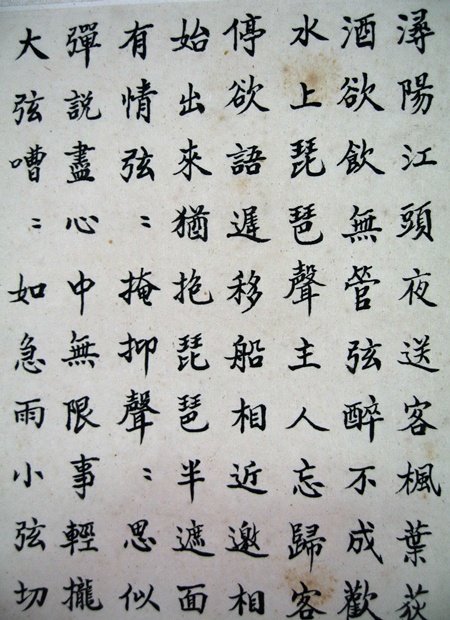 潯陽江頭夜送客楓葉荻
酒欲飲無管弦醉不成歡
水上琵琶聲主人忘歸客
停欲語遲移船相近邀相
始出來猶抱琵琶半遮面
有情弦〻掩抑聲〻思似
彈說盡心中無限事輕攏
大弦嘈〻如急雨小弦切